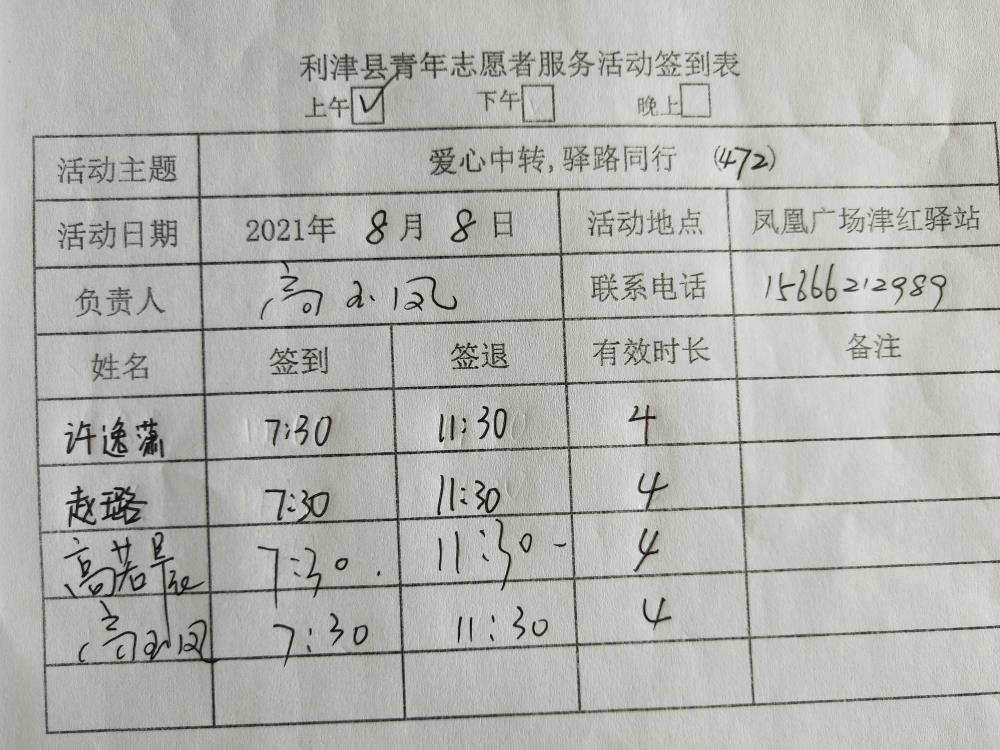 利津县青年志愿者服务活动签到表
上午☑ 下午□ 晚上□
活动主题 爱心中转,驿路同行 (472)
活动日期 2021年 8 月 8 日 活动地点 凤凰广场津红驿站
负责人 高 联系电话 15666212989
姓名 签到 签退 有效时长 备注
许逸潇 7:30 11:30 4
赵璐 7:30 11:30 4
高若 7:30. 11:30- 4
高 7:30 11:30 4